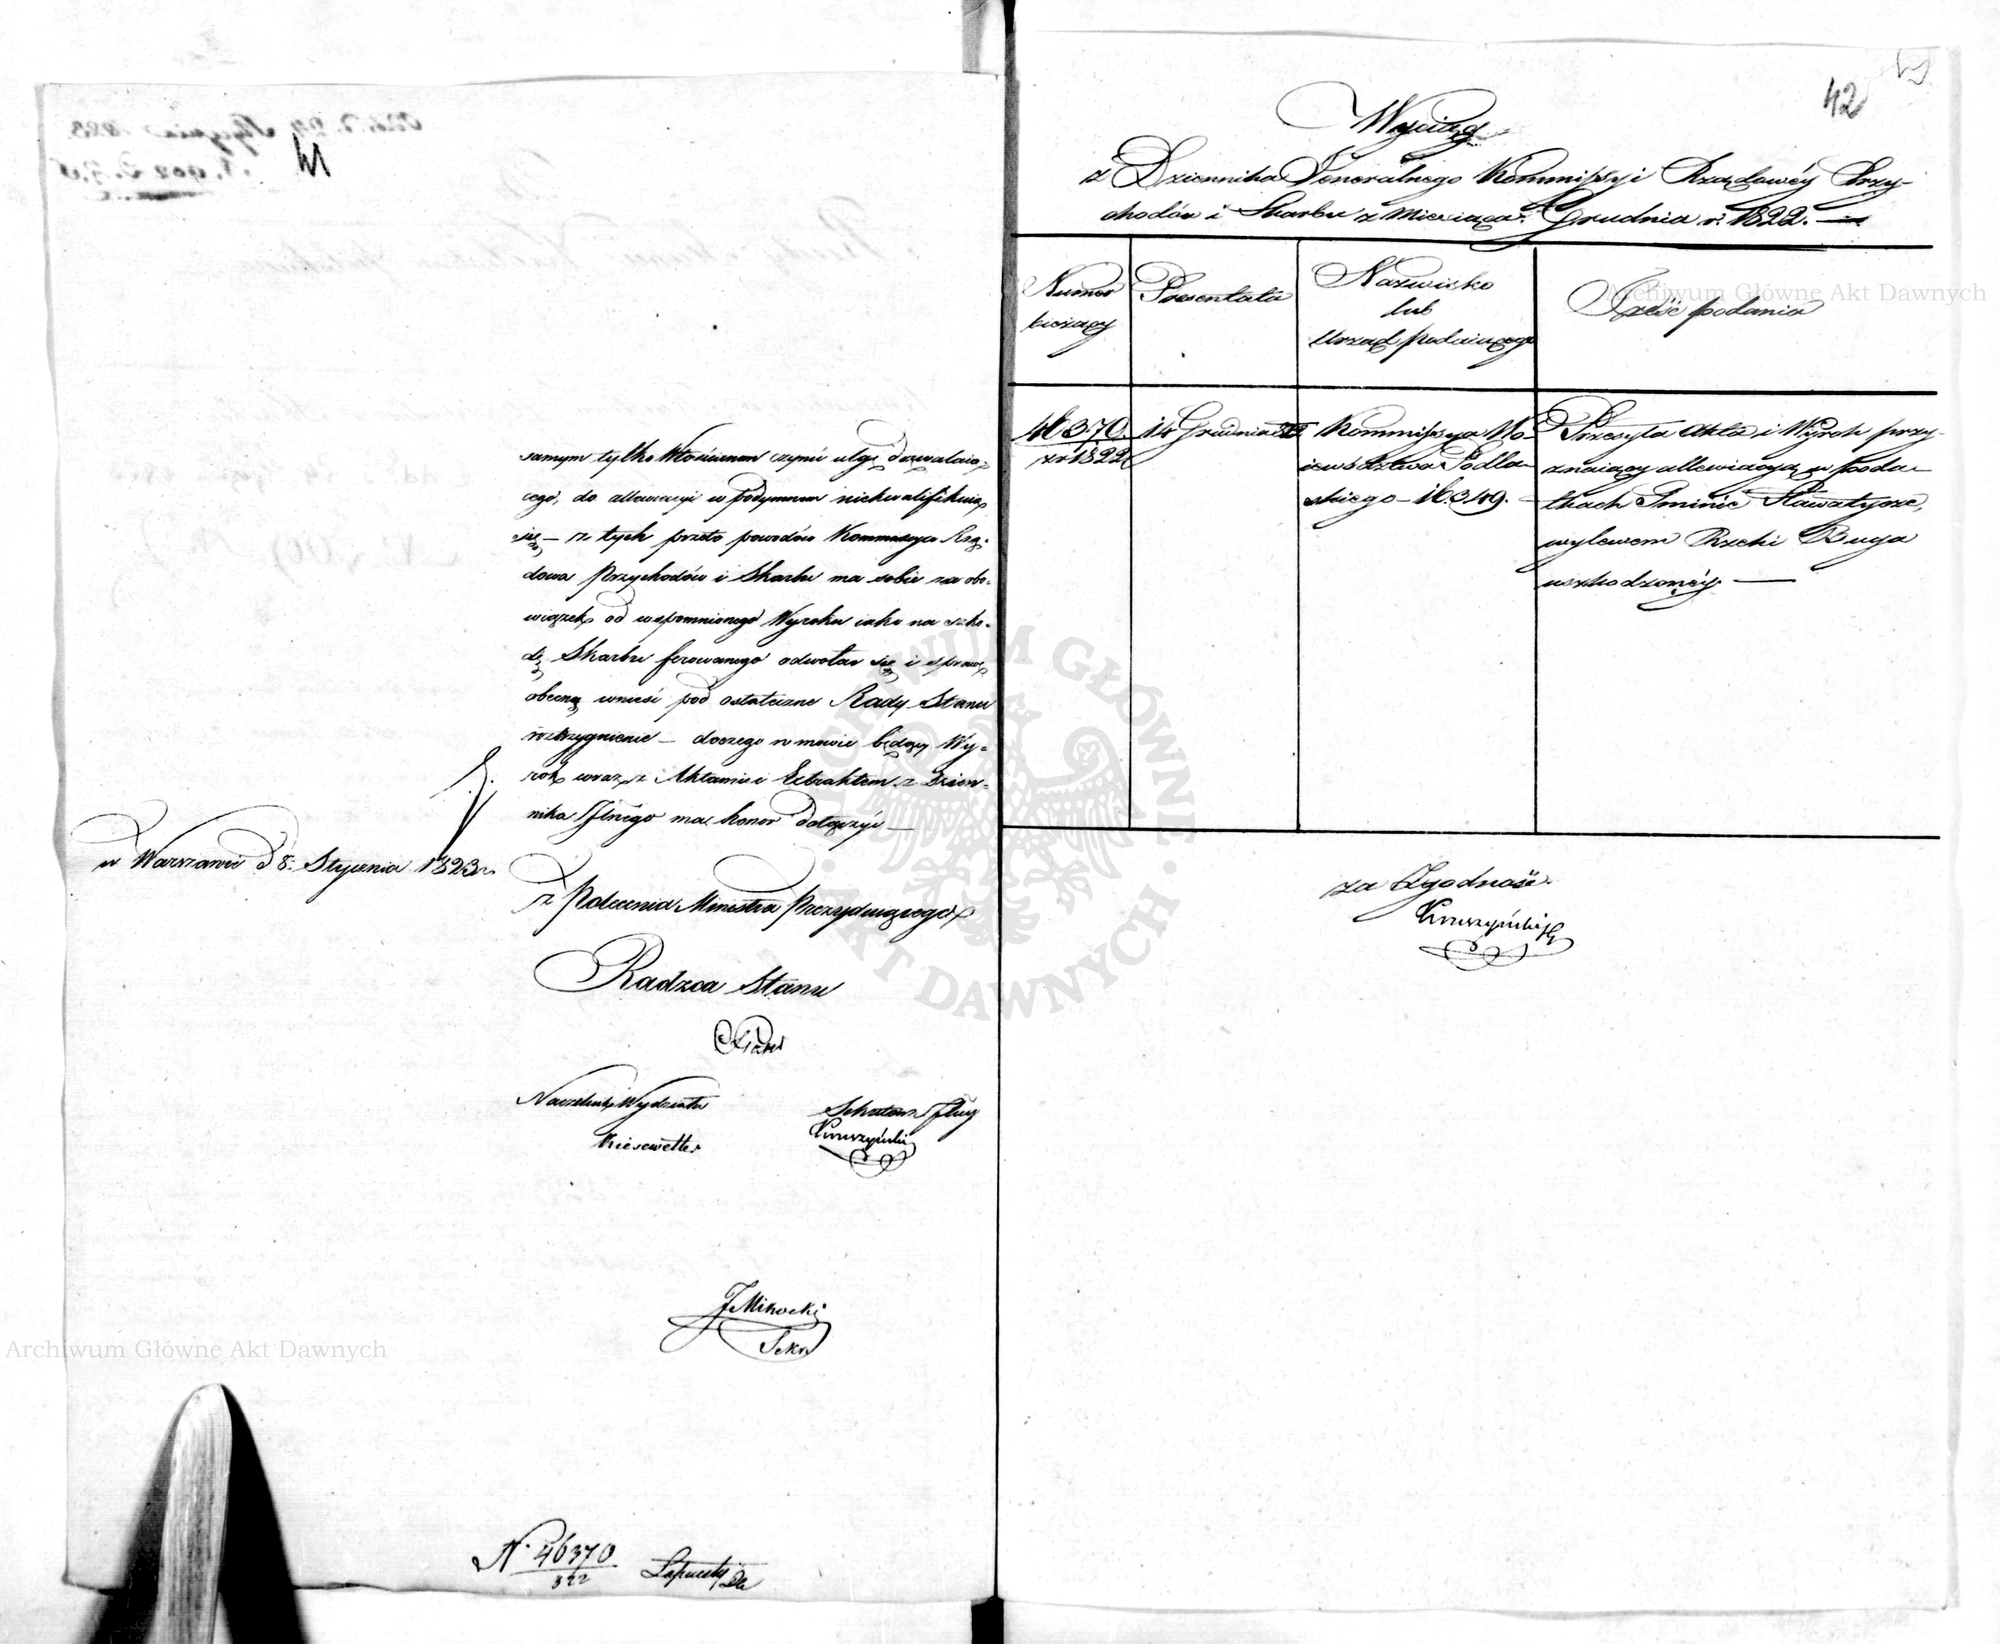 samym tylko Włościanom czynić ulgę dozwalaią-
cego, do allewiacyi w podymnem niekwalifikuią
się — z tych przeto powodów Kommissya Rzą-
dowa Przychodów i Skarbu ma sobie za obo-
wiązek od wspomnionego Wyroku iako na szko-
dę Skarbu ferowanego odwołać się i sprawę
obecną wnieść pod ostateczne Rady Stanu
roztrzygnienie — do czego w mowie będący Wy-
rok wraz z Aktami i Extraktem z Dzien-
nika Jlnego ma honor dołączyć —
w Warszawie d 8. Stycznia 1823 r.
z Polecenia Ministra Prezyduiącego
Radzca Stanu
Naczelnik Wydziału
Kiesewetter
Sekretarz Jlny
Kruszyński
JMinocki
Sekr
N. 46370
822
42
Wyciąg
z Dziennika Generalnego Kommissyi Rządowéy Przy-
chodów i Skarbu z Miesiąca Grudnia r. 1822. —
Numer
bieżący
Presentata
Nazwisko
lub
Urząd podaiącego
Treść podania
46370
xr 1822
14 Grudnia 822
Kommissya Wo-
iewództwa Podla-
skiego — 16349.
Przesyła Akta i Wyrok przy-
znaiący allewiacyą w Poda-
tkach Gminie Sławatycze,
wylewem Rzeki Buga
uszkodzonéy. —
za Zgodność
Kruszyński
Archiwum Główne Akt Dawnych
Archiwum Główne Akt Dawnych
ARCHIWUM GŁÓWNE · AKT DAWNYCH ·